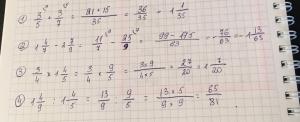 ① 3/5 + 3/7 = 21+15/35 = 36/35 = 1 1/35
② 1 4/7 - 2 7/9 = 11/7 - 25/9 = 99-175/63 = -76/63 = -1 13/63
③ 3/4 × 1 4/5 = 3/4 × 9/5 = 3×9/4×5 = 27/20 = 1 7/20
④ 1 4/9 : 1 4/5 = 13/9 · 5/9 = 13×5/9×9 = 65/81